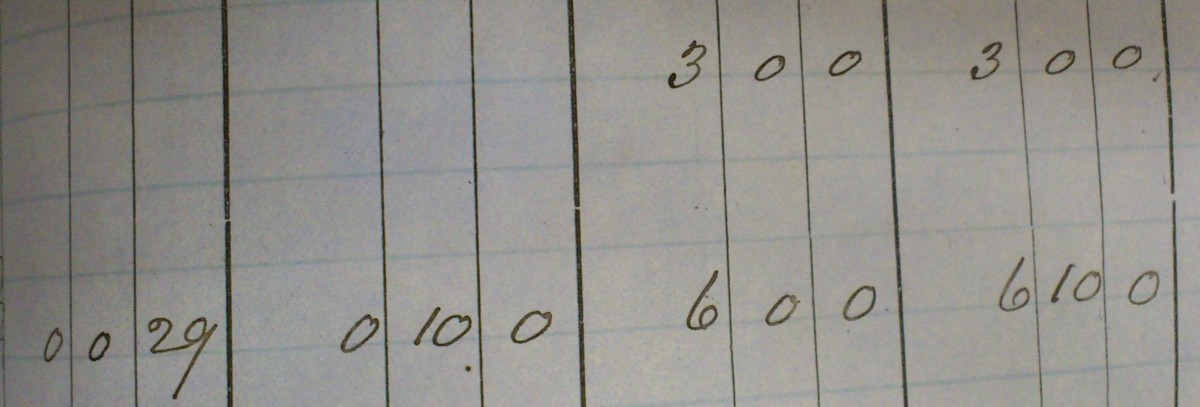 3 0 0 3 0 0
0 0 29 0 10 0 6 0 0 6 10 0